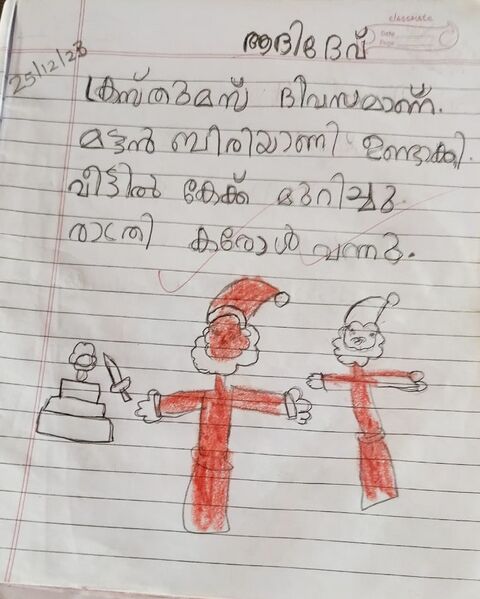 classmate
Date
Page
ആദിദേവ്
25/12/23
ക്രിസ്തുമസ് ദിവസമാണ്.
മട്ടൻ ബിരിയാണി ഉണ്ടാക്കി.
വീട്ടിൽ കേക്ക് മുറിച്ചു.
രാത്രി കരോൾ വന്നു.